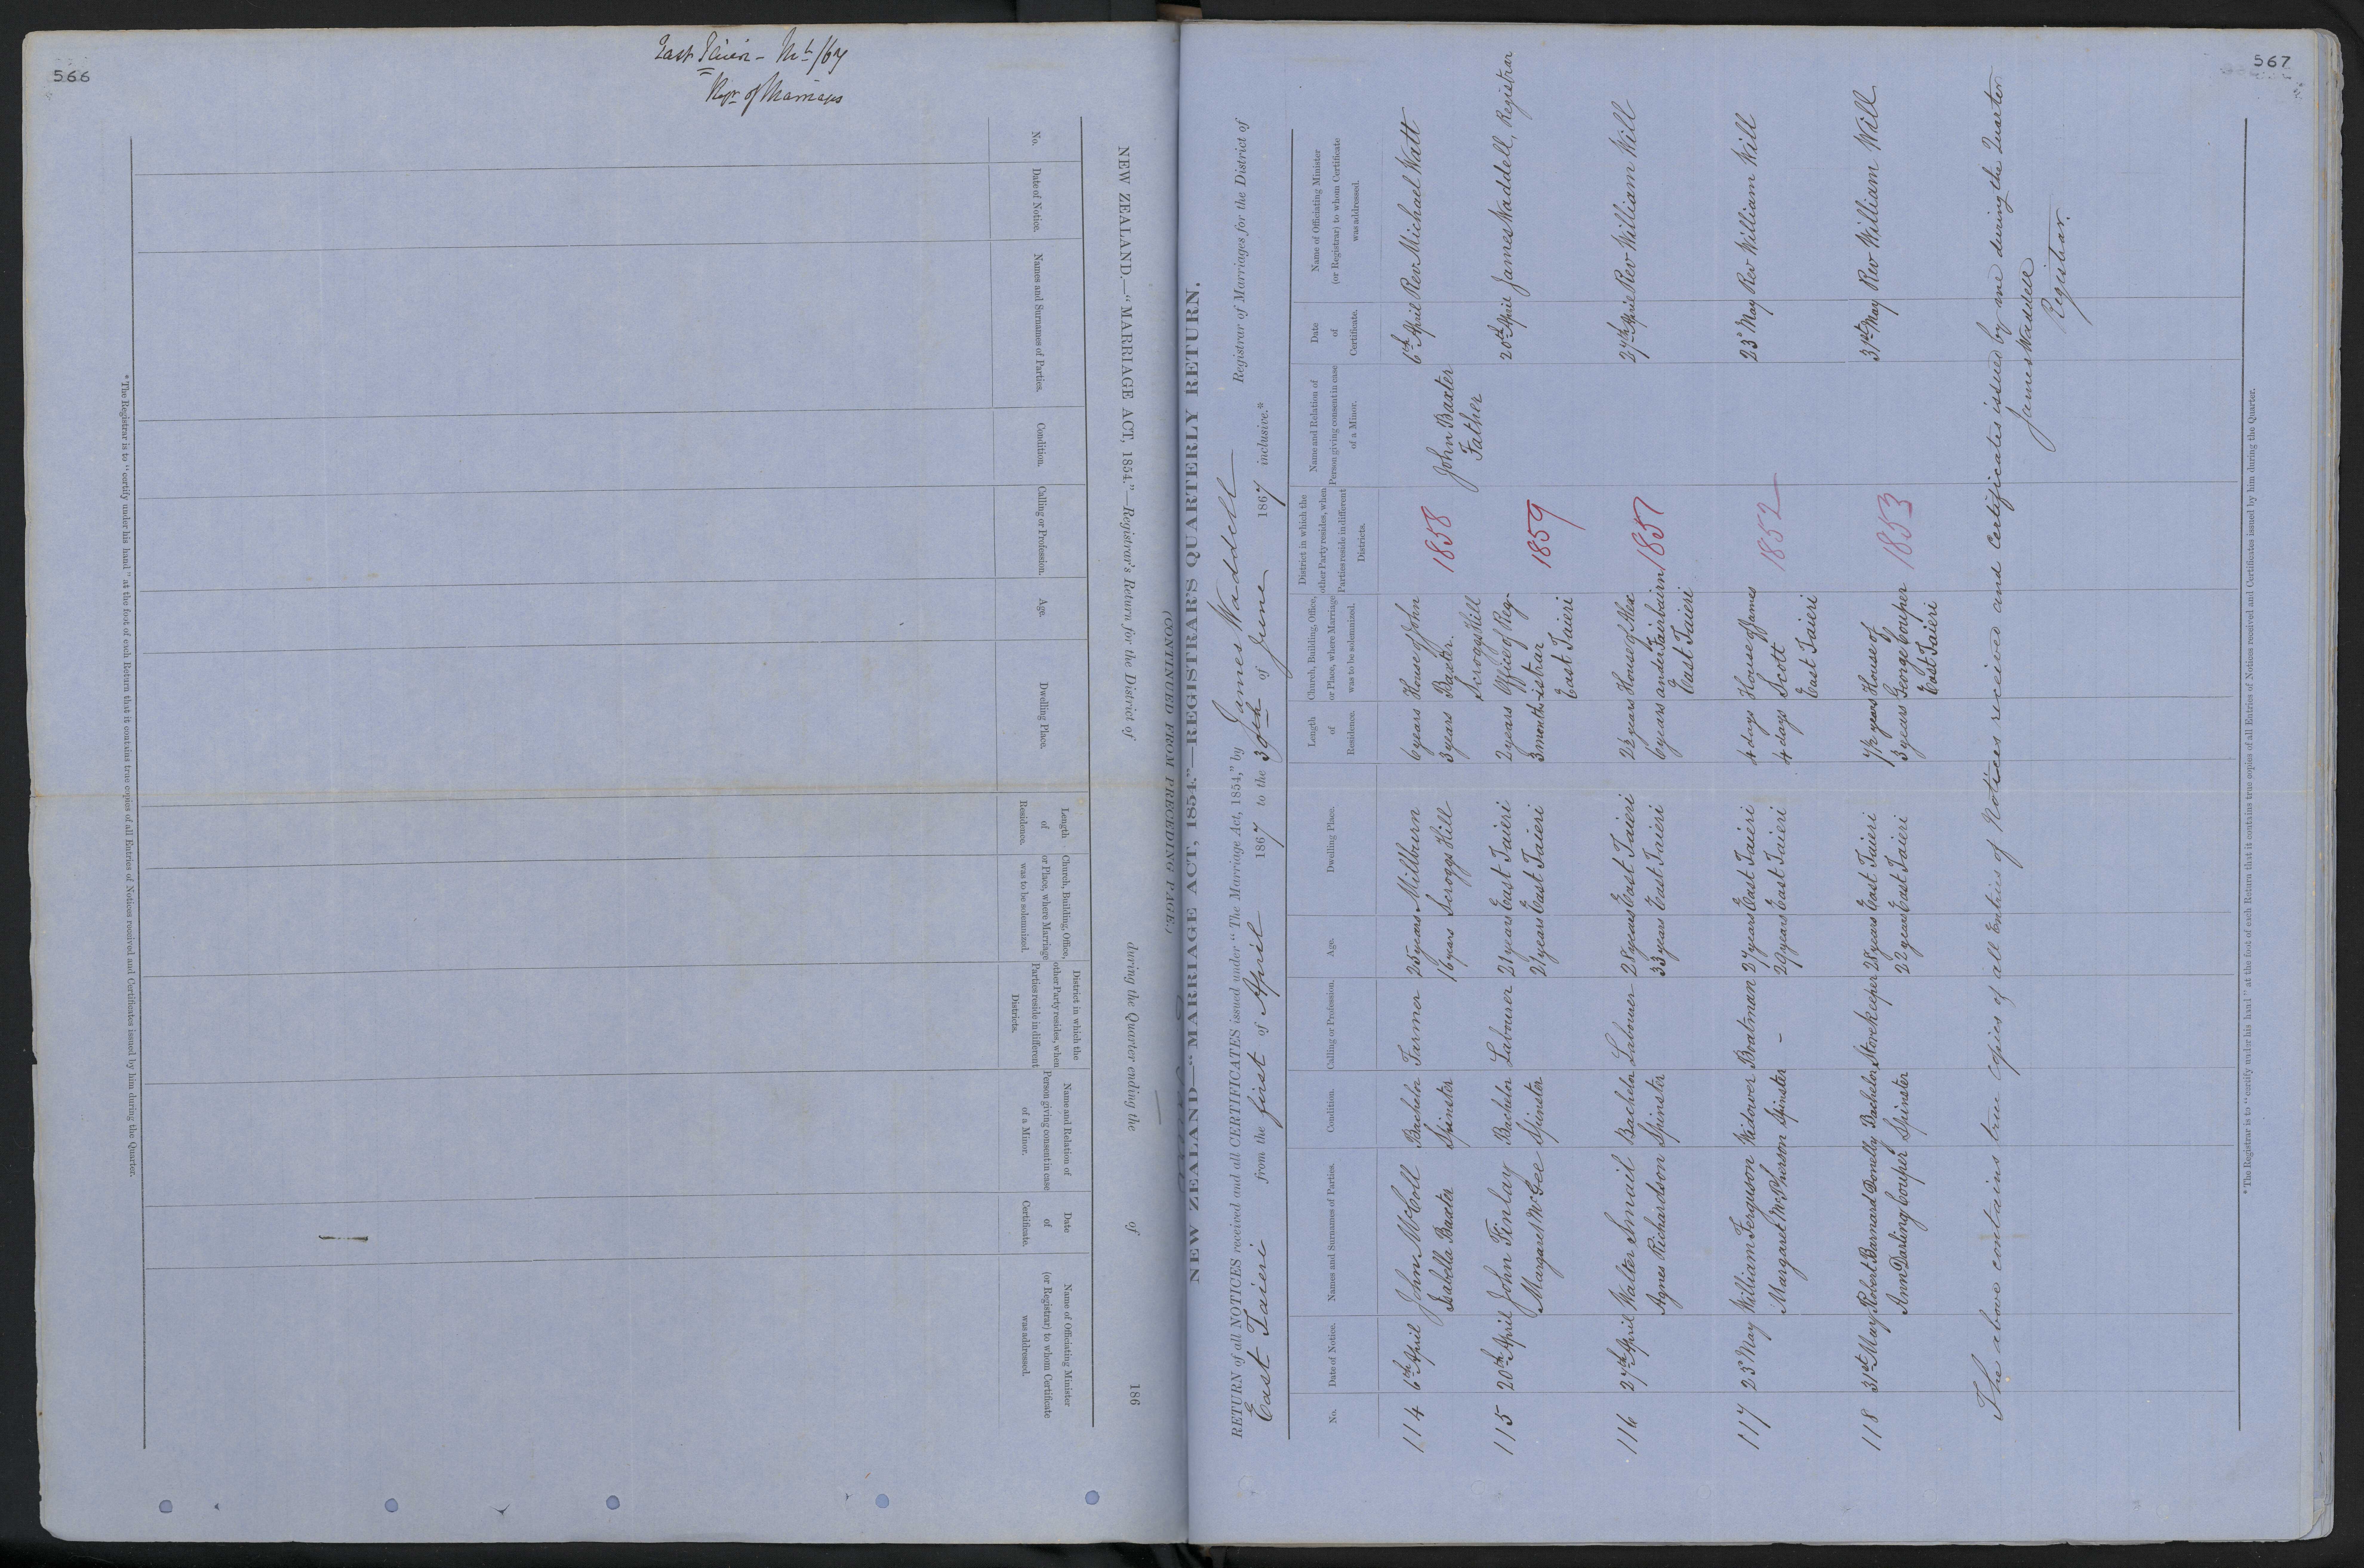 566
East Taieri - 
Regr of Marriages
NEW ZEALAND.—“MARRIAGE ACT, 1854.”—Registrar's Return for the District of during the Quarter ending the of 186
No. Date of Notice. Names and Surnames of Parties. Condition. Calling or Profession. Age. Dwelling Place. Length of Residence. Church, Building, Office, or Place, where Marriage was to be solemnized. District in which the other Party resides, when Parties reside in different Districts. Name and Relation of Person giving consent in case of a Minor. Date of Certificate. Name of Officiating Minister (or Registrar) to whom Certificate was addressed.
* The Registrar is to “certify under his hand” at the foot of each Return that it contains true copies of all Entries of Notices received and Certificates issued by him during the Quarter.
567
(CONTINUED FROM PRECEDING PAGE.)
NEW ZEALAND—“MARRIAGE ACT, 1854.”—REGISTRAR'S QUARTERLY RETURN.
RETURN of all NOTICES received and all CERTIFICATES issued under “The Marriage Act, 1854,” by James Waddell Registrar of Marriages for the District of
East Taieri from the first of April 1867 to the 30th of June 1867 inclusive.*
No. Date of Notice. Names and Surnames of Parties. Condition. Calling or Profession. Age. Dwelling Place. Length of Residence. Church, Building, Office, or Place, where Marriage was to be solemnized. District in which the other Party resides, when Parties reside in different Districts. Name and Relation of Person giving consent in case of a Minor. Date of Certificate. Name of Officiating Minister (or Registrar) to whom Certificate was addressed.
114 6th April John McColl Bachelor Farmer 25 years Milburn 6 years House of John 6th April Rev Michael Watt
Isabella Baxter Spinster 16 years Scroggs Hill 3 years Baxter. 1858 John Baxter
Scroggs Hill Father
115 20th April John Finlay Bachelor Labourer 21 years East Taieri 2 years Office of Reg- 20th April James Waddell, Registrar
Margaret McGee Spinster 21 years East Taieri 3 months istrar 1859
East Taieri
116 27th April Walter Smail Bachelor Labourer 28 years East Taieri 2½ years House of Alex 27th April Rev William Will
Agnes Richardson Spinster 33 years East Taieri 6 years ander Fairbairn 1857
East Taieri
117 23d May William Ferguson Widower Boatman 27 years East Taieri 4 days House of James 23d May Rev William Will
Margaret McPherson Spinster - 29 years East Taieri 4 days Scott 1852
East Taieri
118 31st May Robert Barnard Donelly Bachelor Storekeeper 28 years East Taieri 1½ years House of 31st May Rev William Will
Ann Darling Couper Spinster 22 years East Taieri 3 years George Couper 1853
East Taieri
The above contains true copies of all Entries of Notices received and Certificates issued by me during the Quarter
James Waddell
Registrar.
* The Registrar is to “certify under his hand” at the foot of each Return that it contains true copies of all Entries of Notices received and Certificates issued by him during the Quarter.